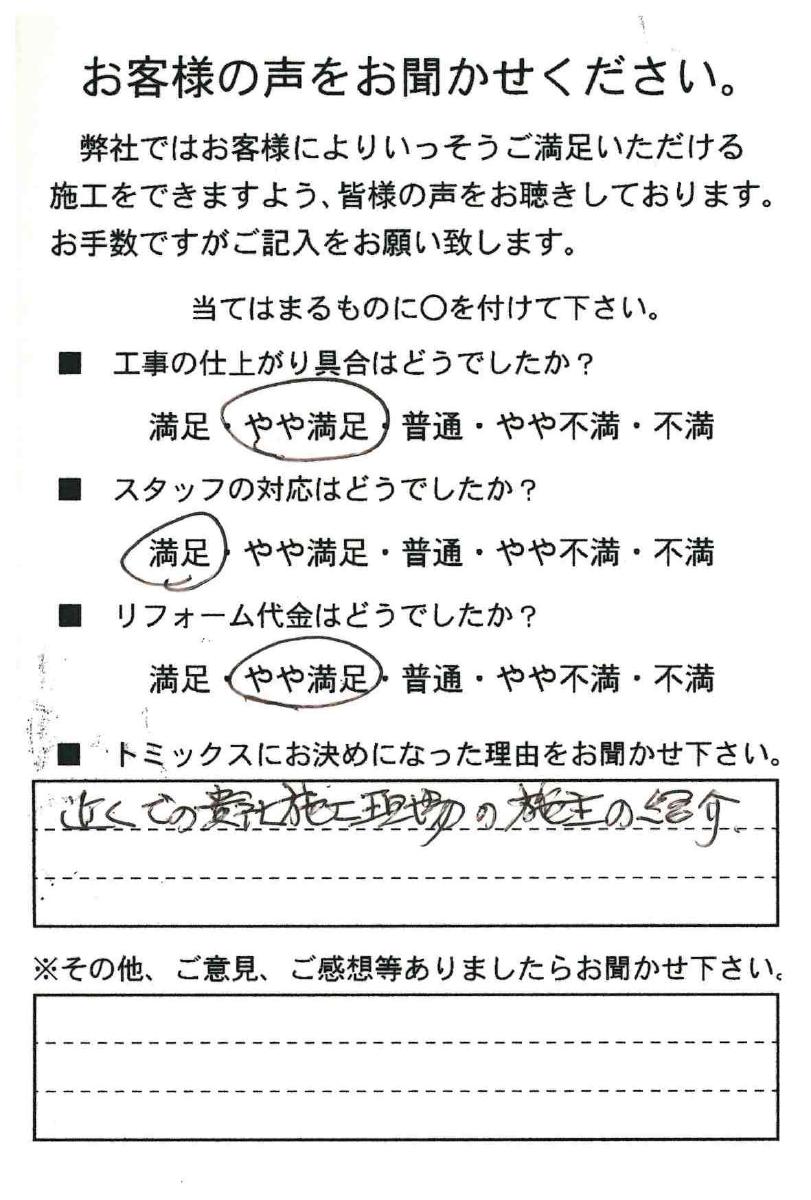 お客様の声をお聞かせください。
弊社ではお客様によりいっそうご満足いただける
施工をできますよう、皆様の声をお聴きしております。
お手数ですがご記入をお願い致します。
当てはまるものに〇を付けて下さい。
■ 工事の仕上がり具合はどうでしたか？
満足・やや満足・普通・やや不満・不満
■ スタッフの対応はどうでしたか？
満足・やや満足・普通・やや不満・不満
■ リフォーム代金はどうでしたか？
満足・やや満足・普通・やや不満・不満
■ トミックスにお決めになった理由をお聞かせ下さい。
近くでの貴社施工現場の施主の紹介
※その他、ご意見、ご感想等ありましたらお聞かせ下さい。